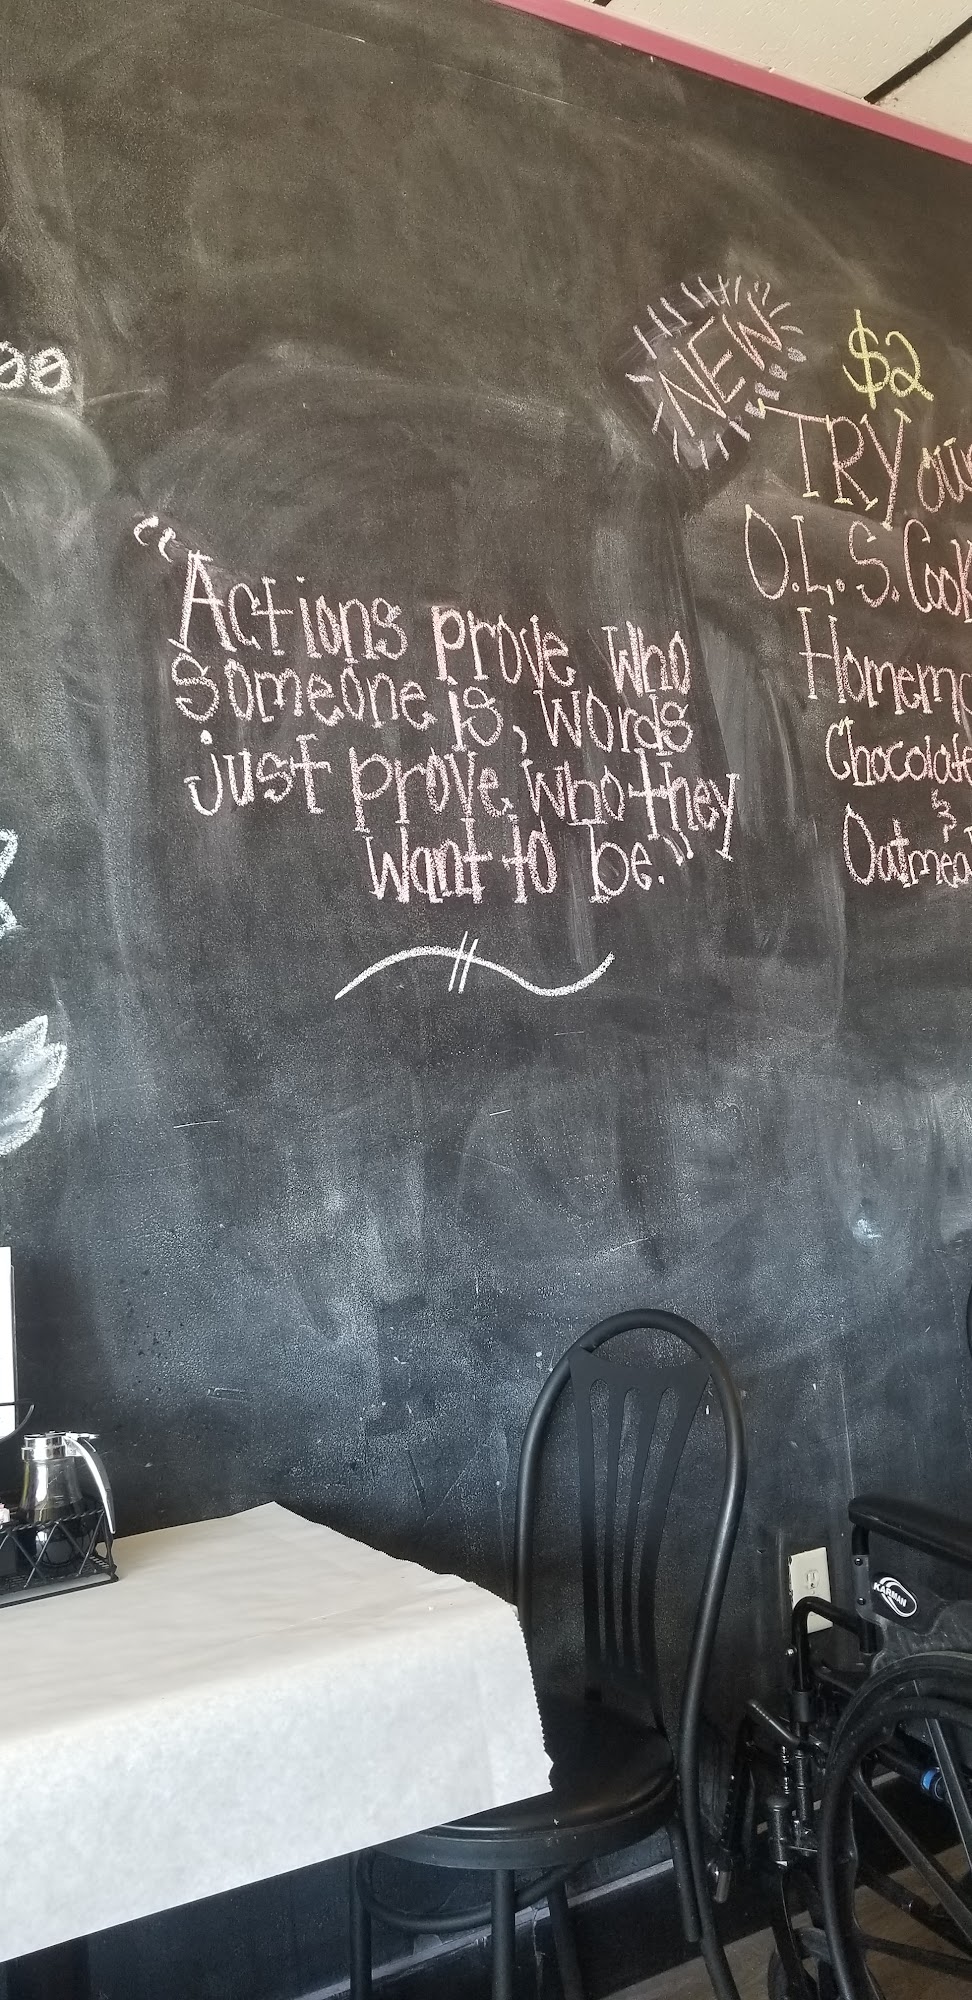 “Actions prove who
someone is, words
just prove who they
want to be.”
NEW
$2
TRY our
O.L.S.
Chocolate
&
KARMAN